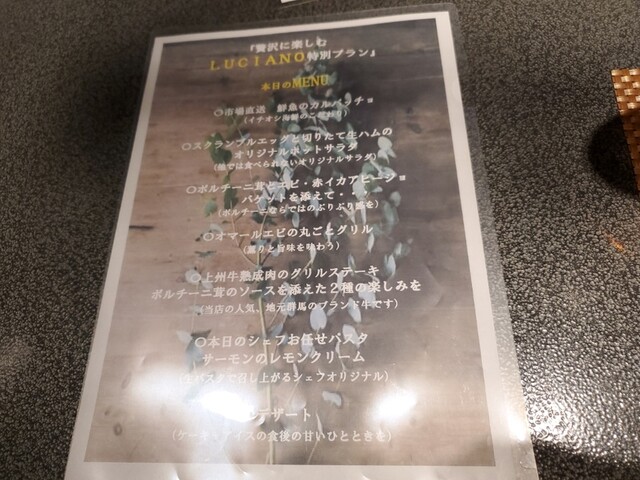 『贅沢に楽しむ
LUCIANO特別プラン』
本日のMENU
〇市場直送 鮮魚のカルパッチョ
(イチオシ海鮮のこだわり)
〇スクランブルエッグと切りたて生ハムの
オリジナルホットサラダ
(他では食べられないオリジナルサラダ)
〇ポルチーニ茸とエビ・赤イカアヒージョ
バゲットを添えて・・・
(ポルチーニならではのぷりぷり感を)
〇オマールエビの丸ごとグリル
(薫りと旨味を味わう)
〇上州牛熟成肉のグリルステーキ
ポルチーニ茸のソースを添えた2種の楽しみを
(当店の人気、地元群馬のブランド牛です)
〇本日のシェフお任せパスタ
サーモンのレモンクリーム
(生パスタで召し上がるシェフオリジナル)
デザート
(ケーキ・アイスの食後の甘いひとときを)